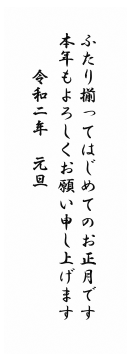 ふたり揃ってはじめてのお正月です
本年もよろしくお願い申し上げます
令和二年　元旦